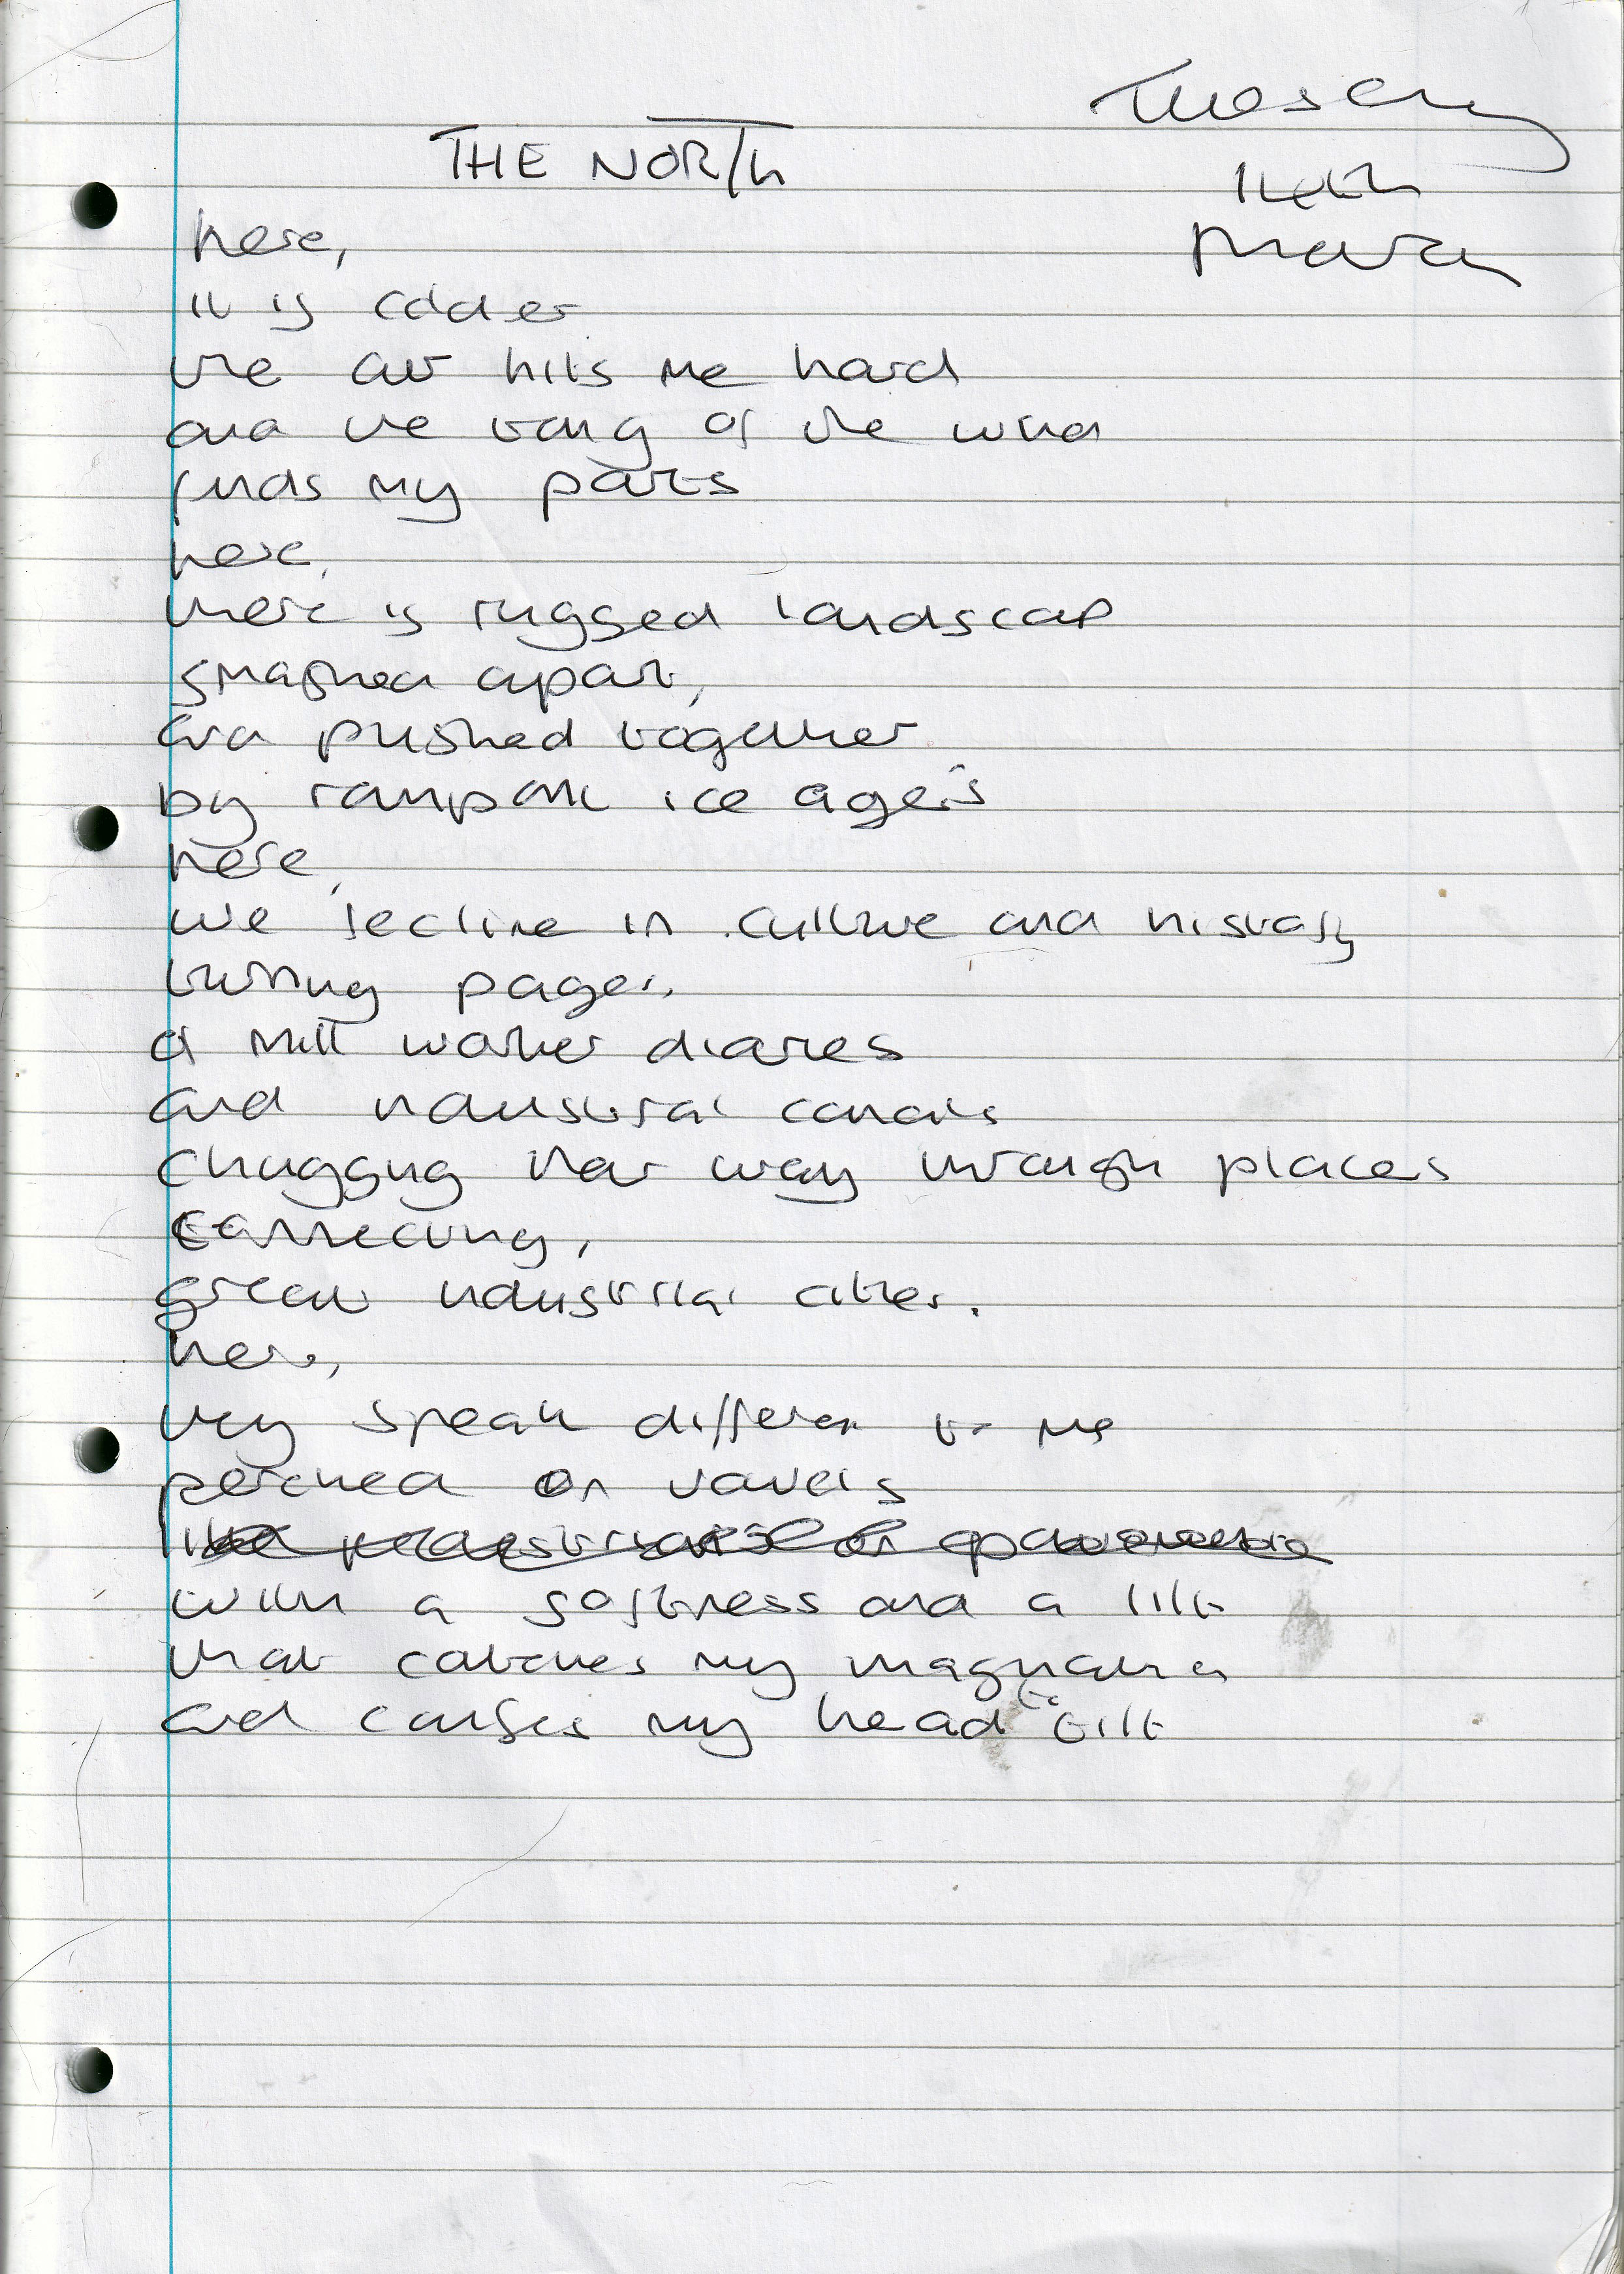 Tuesday
14th
March
THE NORTH
here,
it is colder
the air hits me hard
and the tang of the wind
finds my parts
here,
there is rugged landscap
smashed apart,
and pushed together
by rampant ice age's
here,
we recline in culture and history
turning pages,
of mill worker diaries
and industrial canals
chugging their way through places
connecting,
great industrial cities.
here,
they speak different to me
perched on vowels
with a softness and a lilt
that catches my imagination
and causes my head to tilt